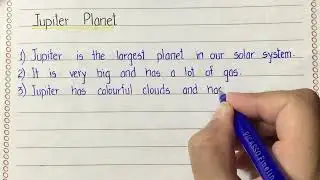 Jupiter Planet
1) Jupiter is the largest planet in our solar system.
2) It is very big and has a lot of gas.
3) Jupiter has colourful clouds and has